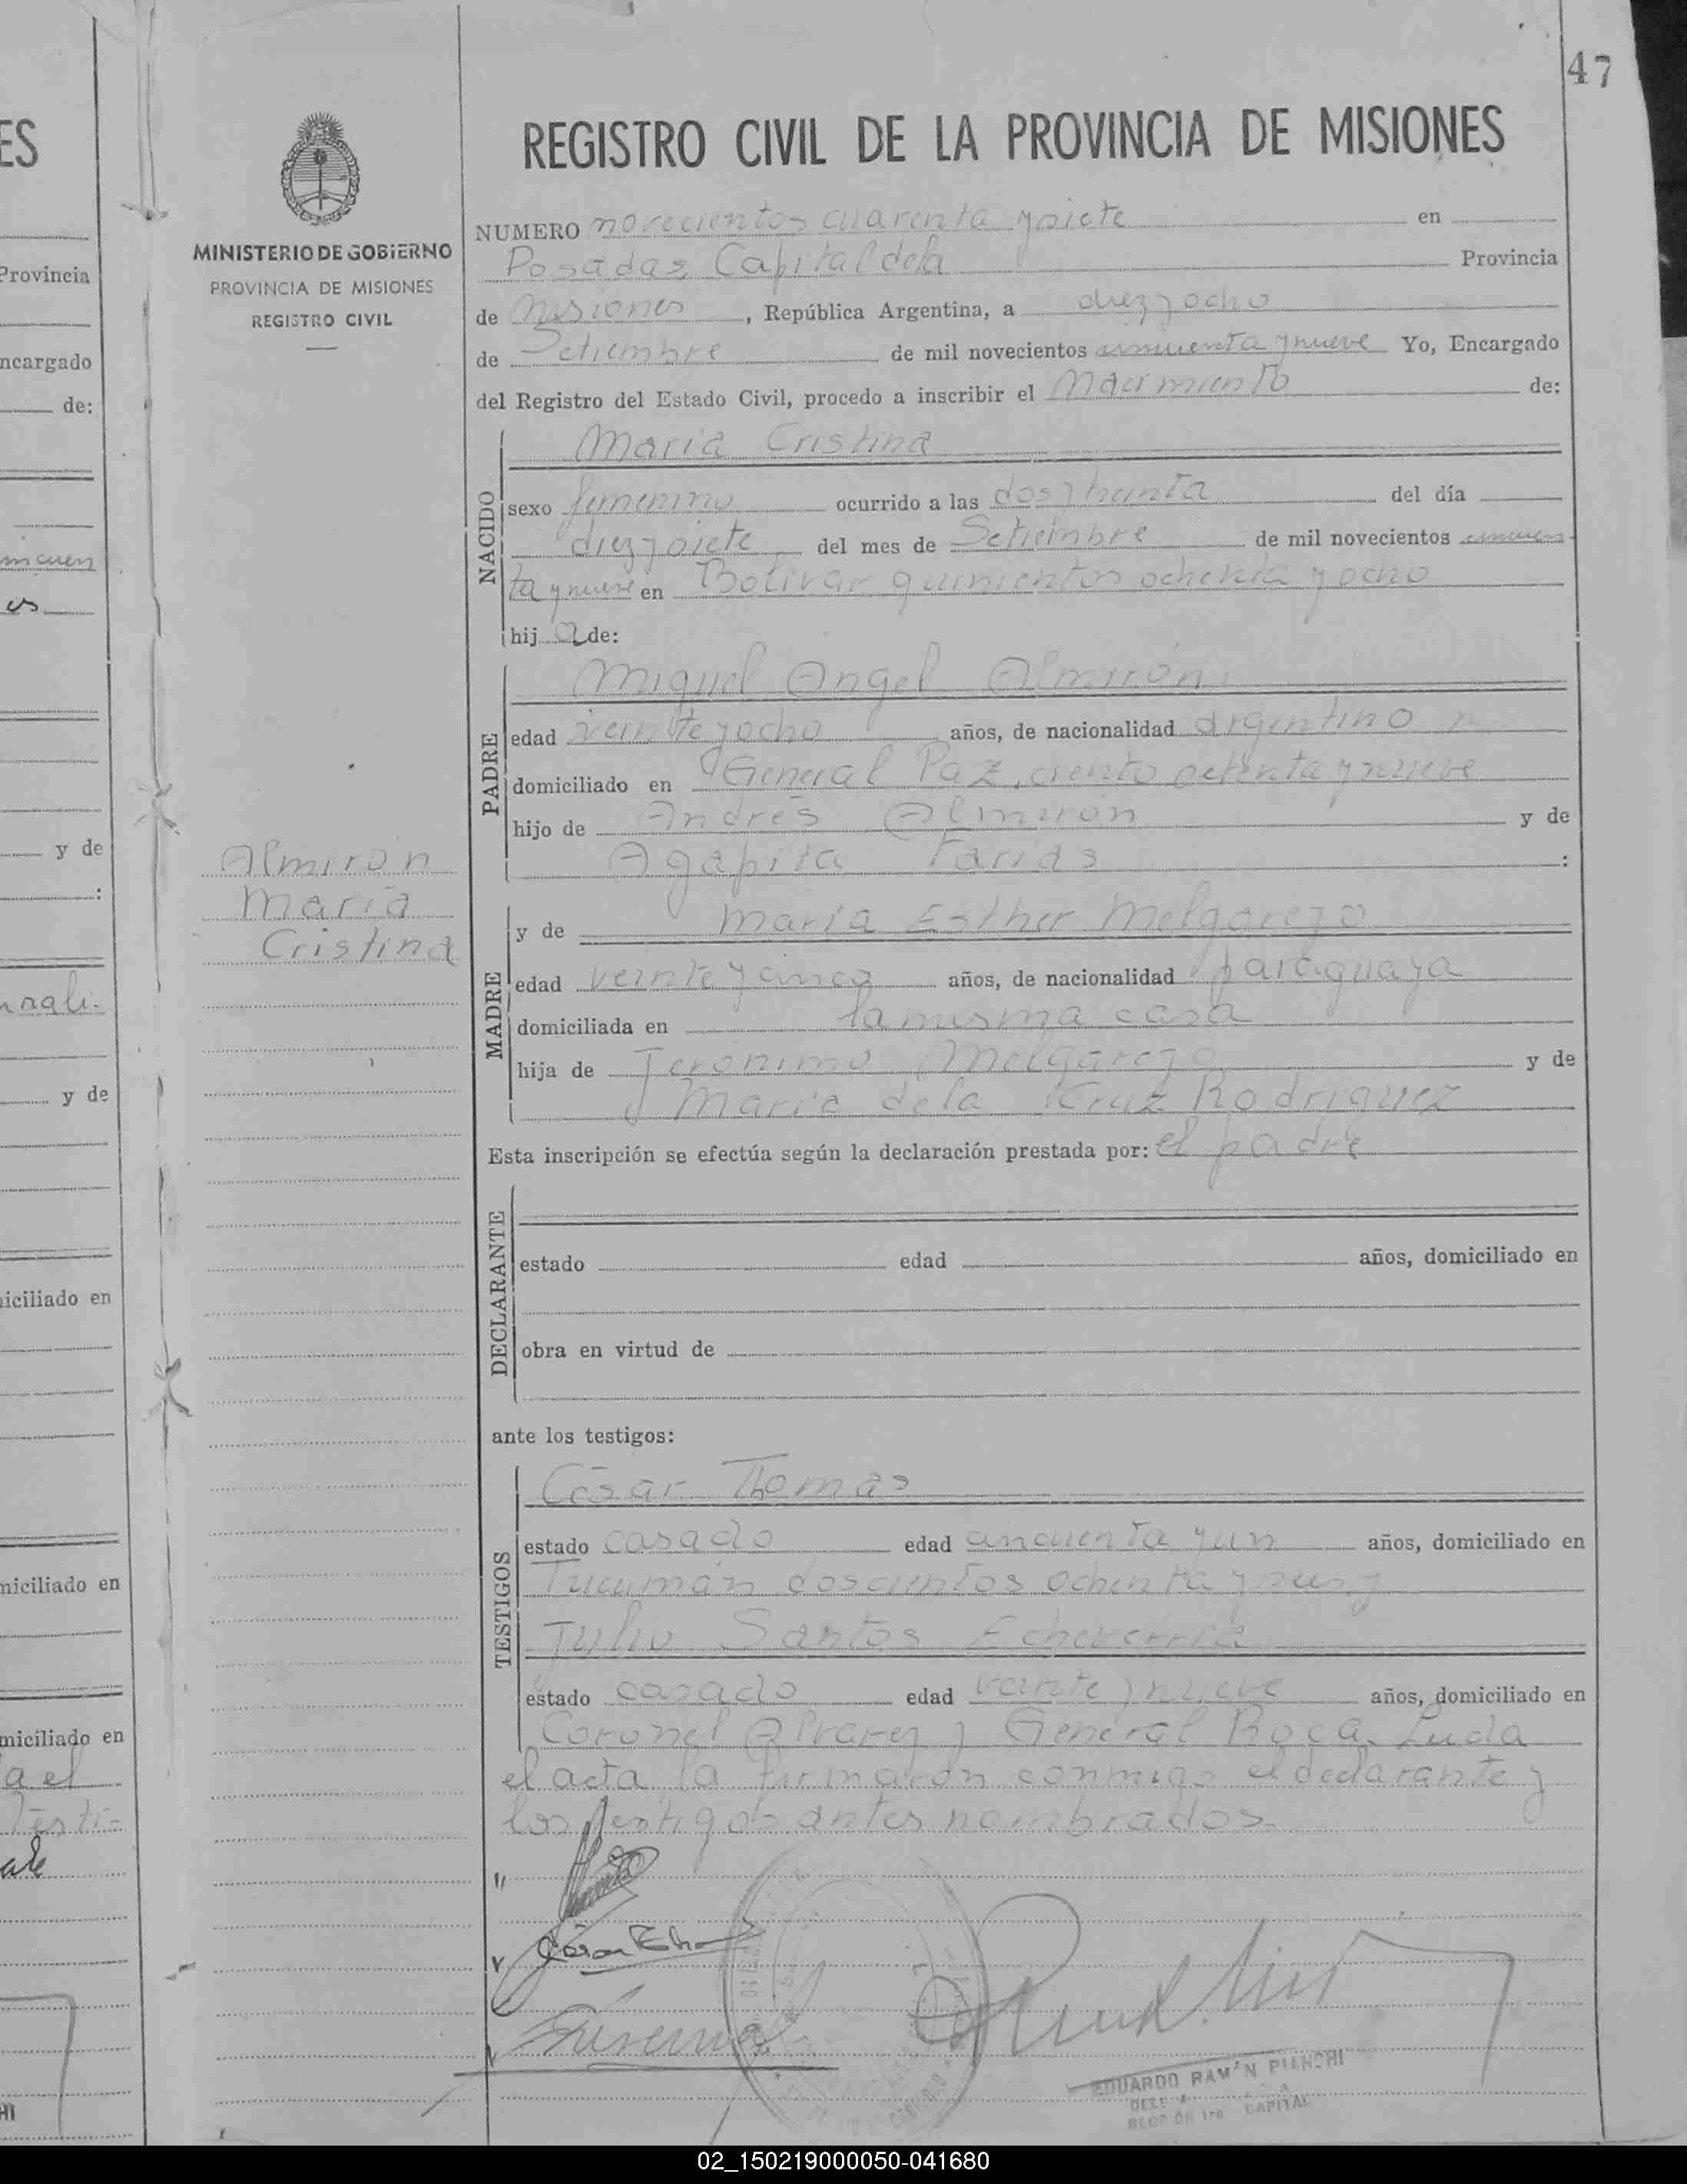 47
REGISTRO CIVIL DE LA PROVINCIA DE MISIONES
MINISTERIO DE GOBIERNO
PROVINCIA DE MISIONES
REGISTRO CIVIL
NUMERO novecientos cuarenta y siete en
Posadas Capital de la Provincia
de Misiones, República Argentina, a diez y ocho
de Setiembre de mil novecientos cincuenta y nueve Yo, Encargado
del Registro del Estado Civil, procedo a inscribir el Nacimiento de:
NACIDO
Maria Cristina
sexo femenino ocurrido a las dos y treinta del día
diez y siete del mes de Setiembre de mil novecientos cincuen
ta y nueve en Bolivar quinientos ochenta y ocho
hija de:
PADRE
Miguel Angel Almirón
edad veinte y ocho años, de nacionalidad argentino
domiciliado en General Paz, ciento setenta y nueve
hijo de Andrés Almirón y de
Agapita Farias :
Almirón
Maria
Cristina
MADRE
y de Maria Esther Melgarejo
edad veinte y cinco años, de nacionalidad paraguaya
domiciliada en la misma casa
hija de Jeronimo Melgarejo y de
Maria de la Kruz Rodriguez
Esta inscripción se efectúa según la declaración prestada por: el padre
DECLARANTE
estado edad años, domiciliado en
obra en virtud de
ante los testigos:
TESTIGOS
César Thomas
estado casado edad cincuenta y un años, domiciliado en
Tucumán doscientos ochenta y y
Julio Santos Echeverria
estado casado edad veinte y nueve años, domiciliado en
Coronel Alvarez y General Roca. Leida
el acta la firmaron conmigo el declarante y
los testigos antes nombrados.
EDUARDO RAMON PIANCHI
CAPITAL
ES
Provincia
ncargado
de:
incuen
y de
:
y de
iciliado en
niciliado en
miciliado en
a el
Testi-
HI
02_150219000050-041680